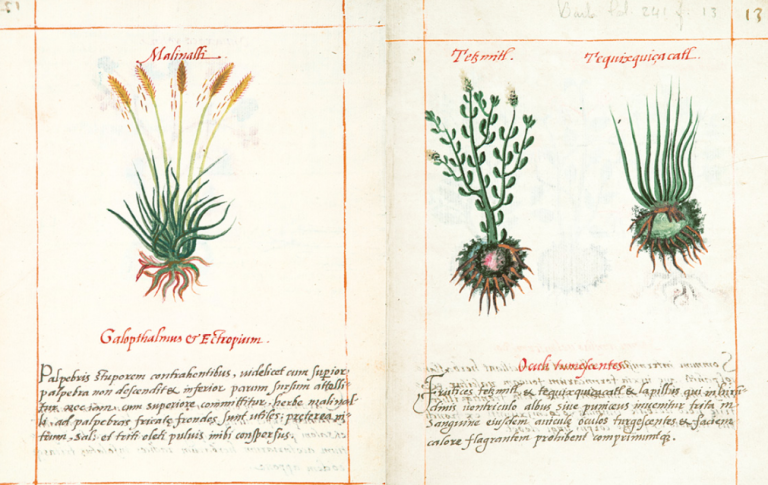 13
Malinalli.
Galopthalmus & Ectropium.
Palpebris stuporem contrahentibus, uidelicet cum superior
palpebra non descendit & inferior parum sursum attolli-
tur nec iam, cum superiore committitur, herbe malinal-
li, ad palpebras fricate frondes sunt utiles: preterea ni-
trum, sal: et triti oleti puluis inibi conspersus.
13
Tetzmitl. Tequixquiçacatl.
Oculi tumescentes.
Frutices tetzmitl, & tequixquiçacatl & lapillus qui in
uentriculo albus siue puniceus inuenitur trita in
sanguine eiusdem auicule oculos turgescentes & faciem
calore flagrantem prohibent comprimuntque.